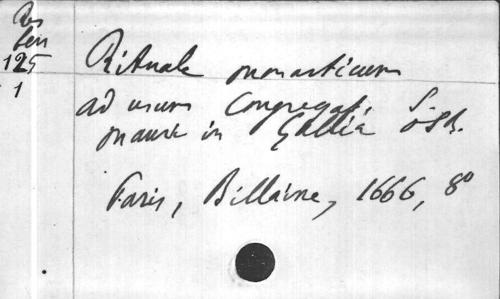 Res
125
1
Rituale monasticum
ad usum Congregat. S.
Mauri in Gallia OSB.
Paris, Billaine, 1666, 8°